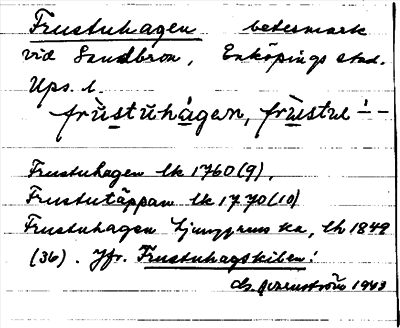 Frustuhagen betesmark
vid Sandbron, Enköpings stad.
Ups. l.
frùstuhágen, frùstu -́ -
Frustuhagen lk 1760 (9),
Frustutäppan lk 1770 (10)
Frustuhagen Ljunggrens ka, lh 1849
(36). Jfr. Frustuhagskilen!
1943